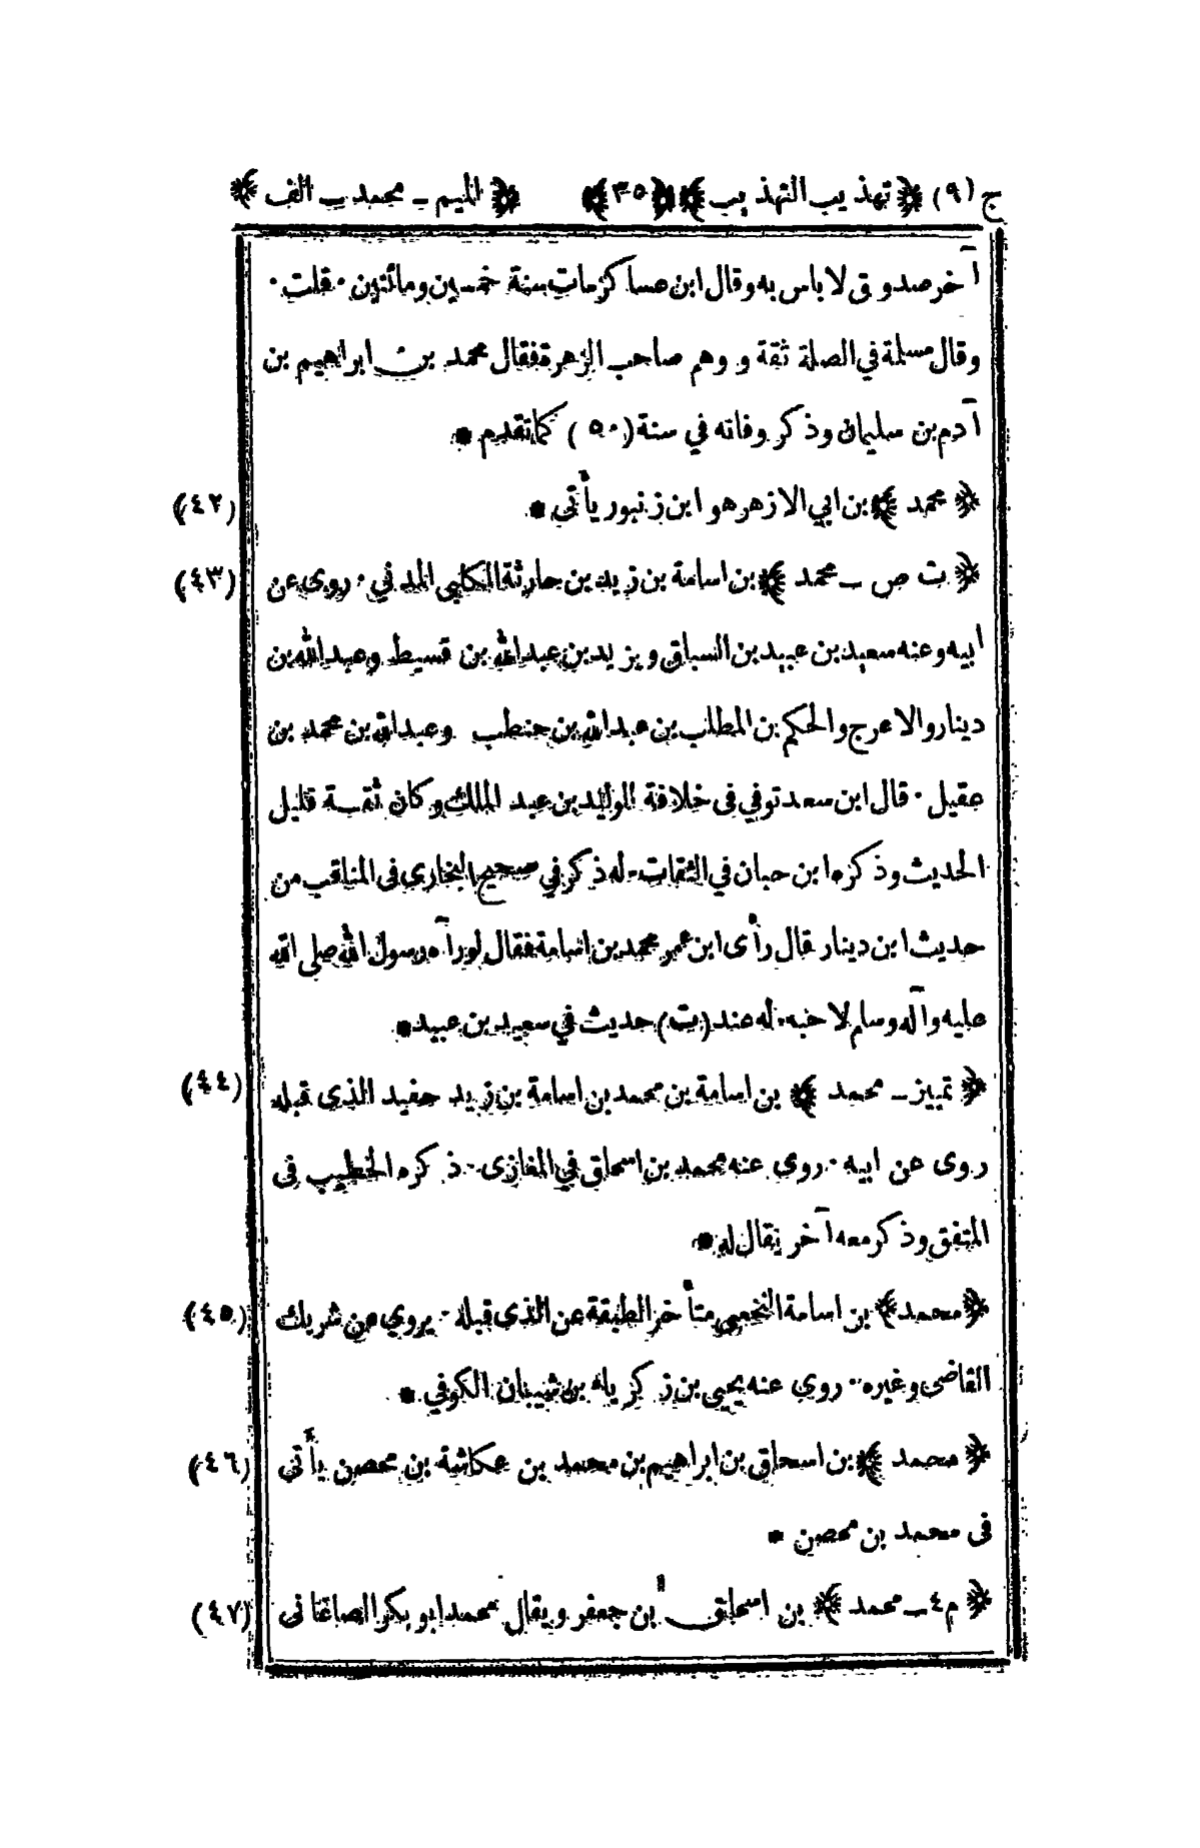 ج (٩) ﴿ تهذيب التهذيب ﴾ ﴿ ٣٥ ﴾ ﴿ الميم ـ محمد ـ الف ﴾
آخر صدوق لا باس به وقال ابن عساكر مات سنة خمسين ومائتين ٠ قلت ٠
وقال مسلمة في الصلة ثقة و وهم صاحب الزهرة فقال محمد بن ابراهيم بن
آدم بن سليمان وذكر وفاته في سنة (٥٠) كما تقدم *
(٤٢) ﴿ محمد ﴾ بن ابي الازهر هو ابن زنبور يأتي *
(٤٣) ﴿ ت ص ـ محمد ﴾ بن اسامة بن زيد بن حارثة الكلبي المدني ٠ روى عن
ابيه وعنه سعيد بن عبيد بن السباق ويزيد بن عبدالله بن قسيط وعبدالله بن
دينار والاعرج والحكم بن المطلب بن عبدالله بن حنطب وعبدالله بن محمد بن
عقيل ٠ قال ابن سعد توفي في خلافة الوليد بن عبد الملك وكان ثقة قليل
الحديث وذكره ابن حبان في الثقات ٠ له ذكر في صحيح البخارى فى المناقب من
حديث ابن دينار قال رأى ابن عمر محمد بن اسامة فقال لو رآه رسول الله صلى الله
عليه وآله وسلم لاحبه ٠ له عند (ت) حديث في سعيد بن عبيد *
(٤٤) ﴿ تمييز ـ محمد ﴾ بن اسامة بن محمد بن اسامة بن زيد حفيد الذى قبله
روى عن ابيه ٠ روى عنه محمد بن اسحاق في المغازى ٠ ذكره الخطيب فى
المتفق وذكر معه آخر يقال له *
(٤٥) ﴿ محمد ﴾ بن اسامة النخعي متأخر الطبقة عن الذى قبله ٠ يروي عن شريك
القاضى وغيره ٠ روى عنه يحيى بن زكرياء بن شيبان الكوفي *
(٤٦) ﴿ محمد ﴾ بن اسحاق بن ابراهيم بن محمد بن عكاشة بن محصن يأتى
فى محمد بن محصن *
(٤٧) ﴿ م ٤ ـ محمد ﴾ بن اسحاق بن جعفر ويقال محمد ابو بكر الصاغانى